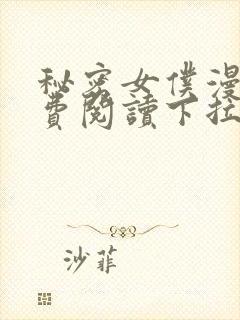 秘密女僕漫
費閱讀下拉
沙菲